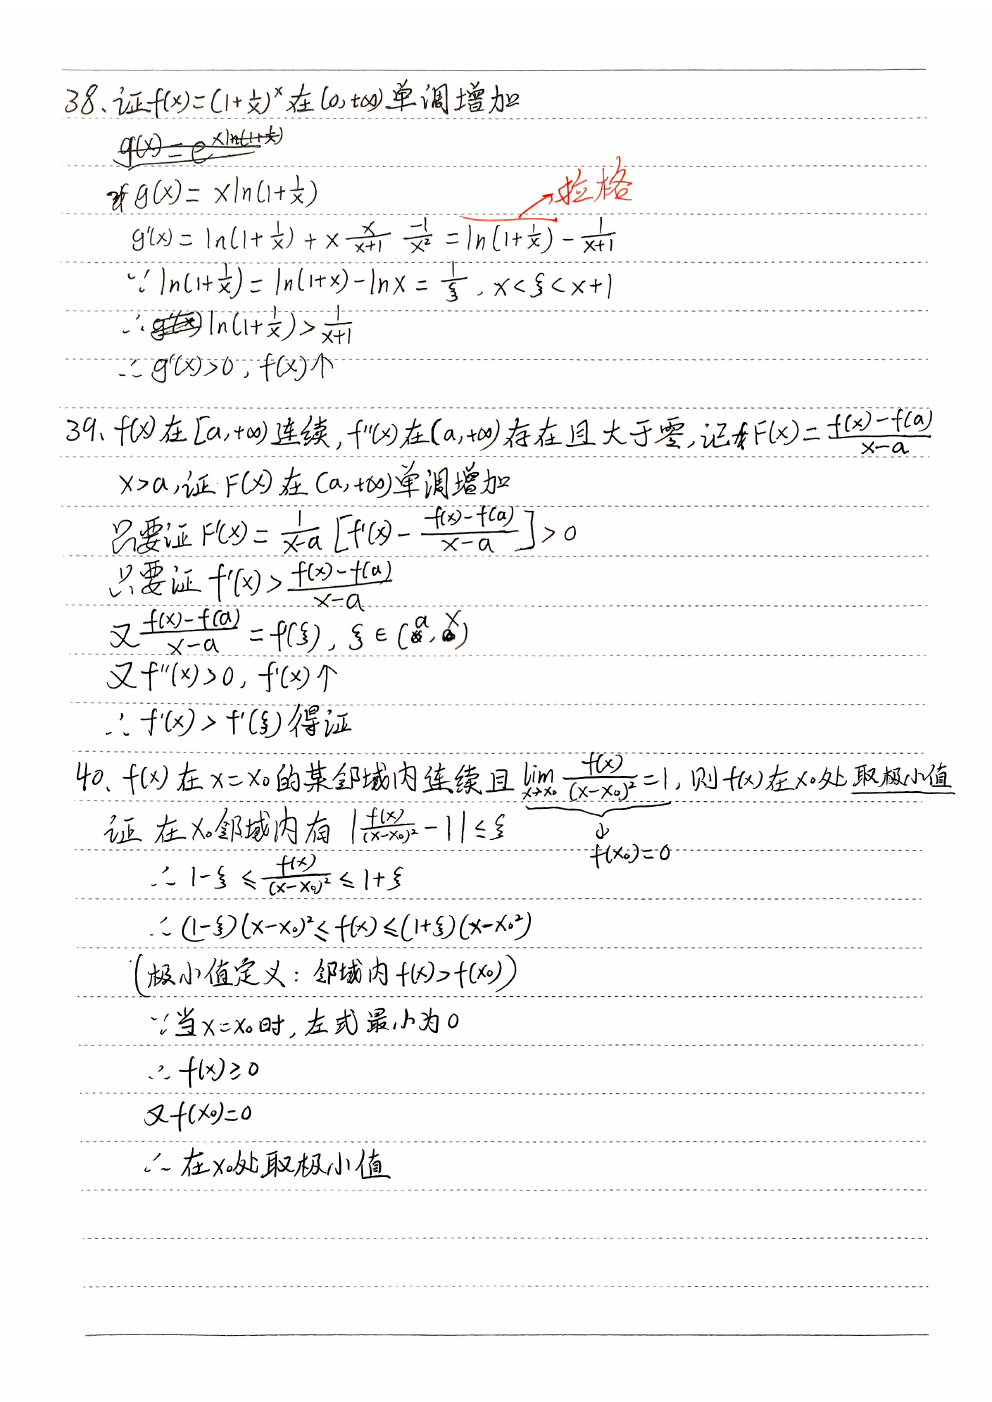 38、证f(x)=(1+1/x)^x在(0,+∞)单调增加
g(x)=e^{xln(1+1/x)}
g(x)=xln(1+1/x)
拉格
g'(x)=ln(1+1/x)+x x/(x+1) -1/x²=ln(1+1/x)-1/(x+1)
∵ln(1+1/x)=ln(1+x)-lnx=1/ξ,x<ξ<x+1
∴ln(1+1/x)>1/(x+1)
∴g'(x)>0,f(x)↑
39、f(x)在[a,+∞)连续,f''(x)在(a,+∞)存在且大于零,记F(x)=(f(x)-f(a))/(x-a)
x>a,证F(x)在(a,+∞)单调增加
只要证F'(x)=1/(x-a)[f'(x)-(f(x)-f(a))/(x-a)]>0
只要证f'(x)>(f(x)-f(a))/(x-a)
又(f(x)-f(a))/(x-a)=f(ξ),ξ∈(a,x)
又f''(x)>0,f'(x)↑
∴f'(x)>f'(ξ)得证
40、f(x)在x=x₀的某邻域内连续且lim x→x₀ f(x)/(x-x₀)²=1,则f(x)在x₀处取极小值
证 在x₀邻域内有|f(x)/(x-x₀)²-1|≤ξ
f(x₀)=0
∴1-ξ≤f(x)/(x-x₀)²≤1+ξ
∴(1-ξ)(x-x₀)²≤f(x)≤(1+ξ)(x-x₀²)
(极小值定义:邻域内f(x)>f(x₀))
∵当x=x₀时,左式最小为0
∴f(x)≥0
又f(x₀)=0
∴在x₀处取极小值